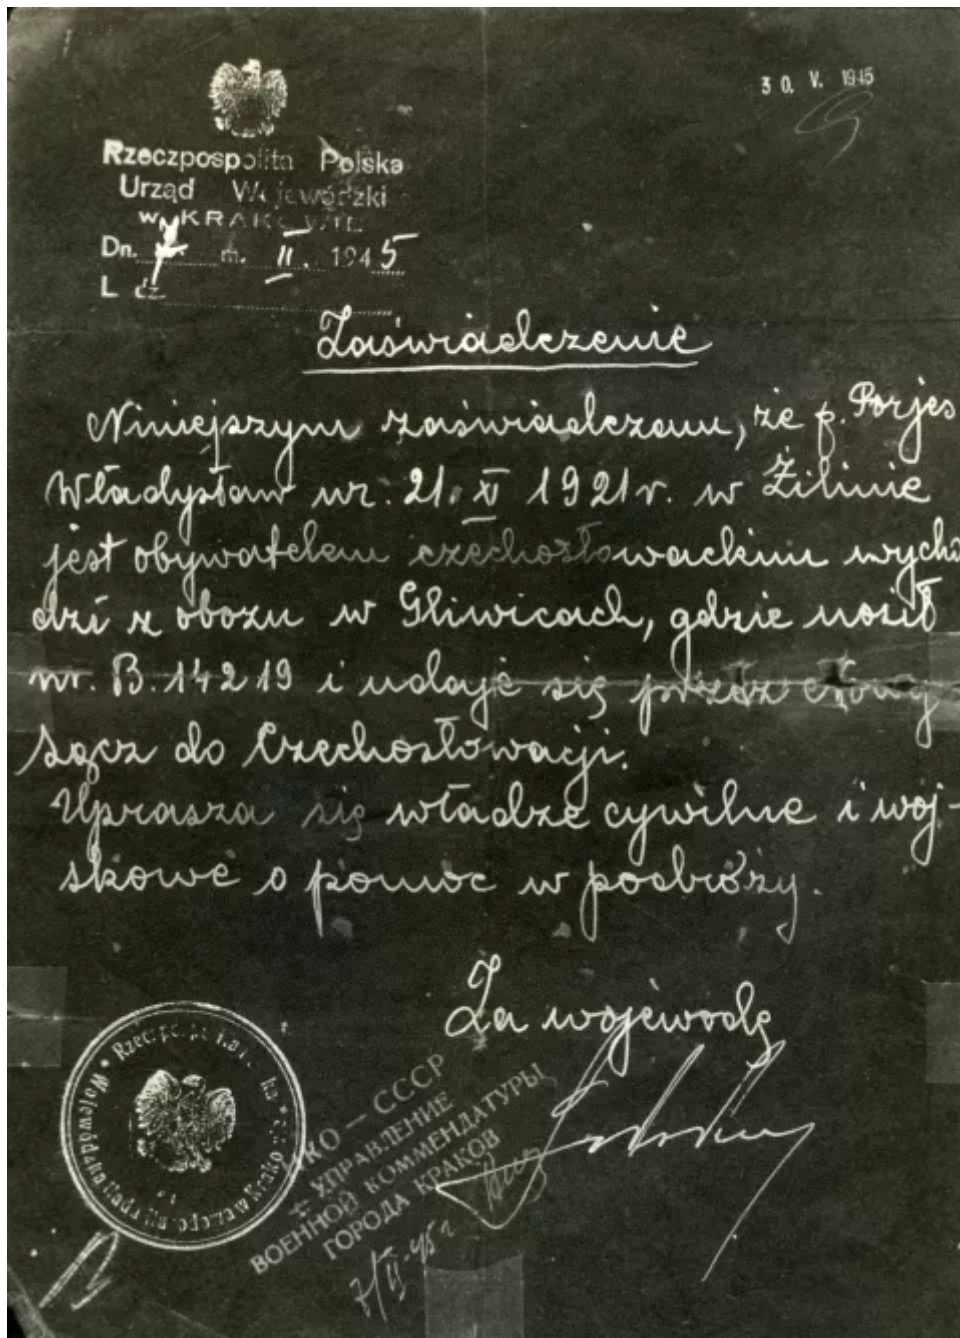 30. V. 1945
Rzeczpospolita Polska
Urząd Wojewódzki
w KRAKOWIE
Dn. 7 m. II. 1945
L. cz.
Zaświadczenie
Niniejszym zaświadczam, że p. Porjes
Władysław ur. 21. XI 1921 r. w Žilinie
jest obywatelem czechosłowackim wycho
dzi z obozu w Gliwicach, gdzie nosił
nr. B. 14219 i udaje się przez Nowy
Sącz do Czechosłowacji.
Uprasza się władze cywilne i woj-
skowe o pomoc w podróży.
Za wojewodę
НКО — СССР
УПРАВЛЕНИЕ
ВОЕННОЙ КОММЕНДАТУРЫ
ГОРОДА КРАКОВ
7/II-45 г